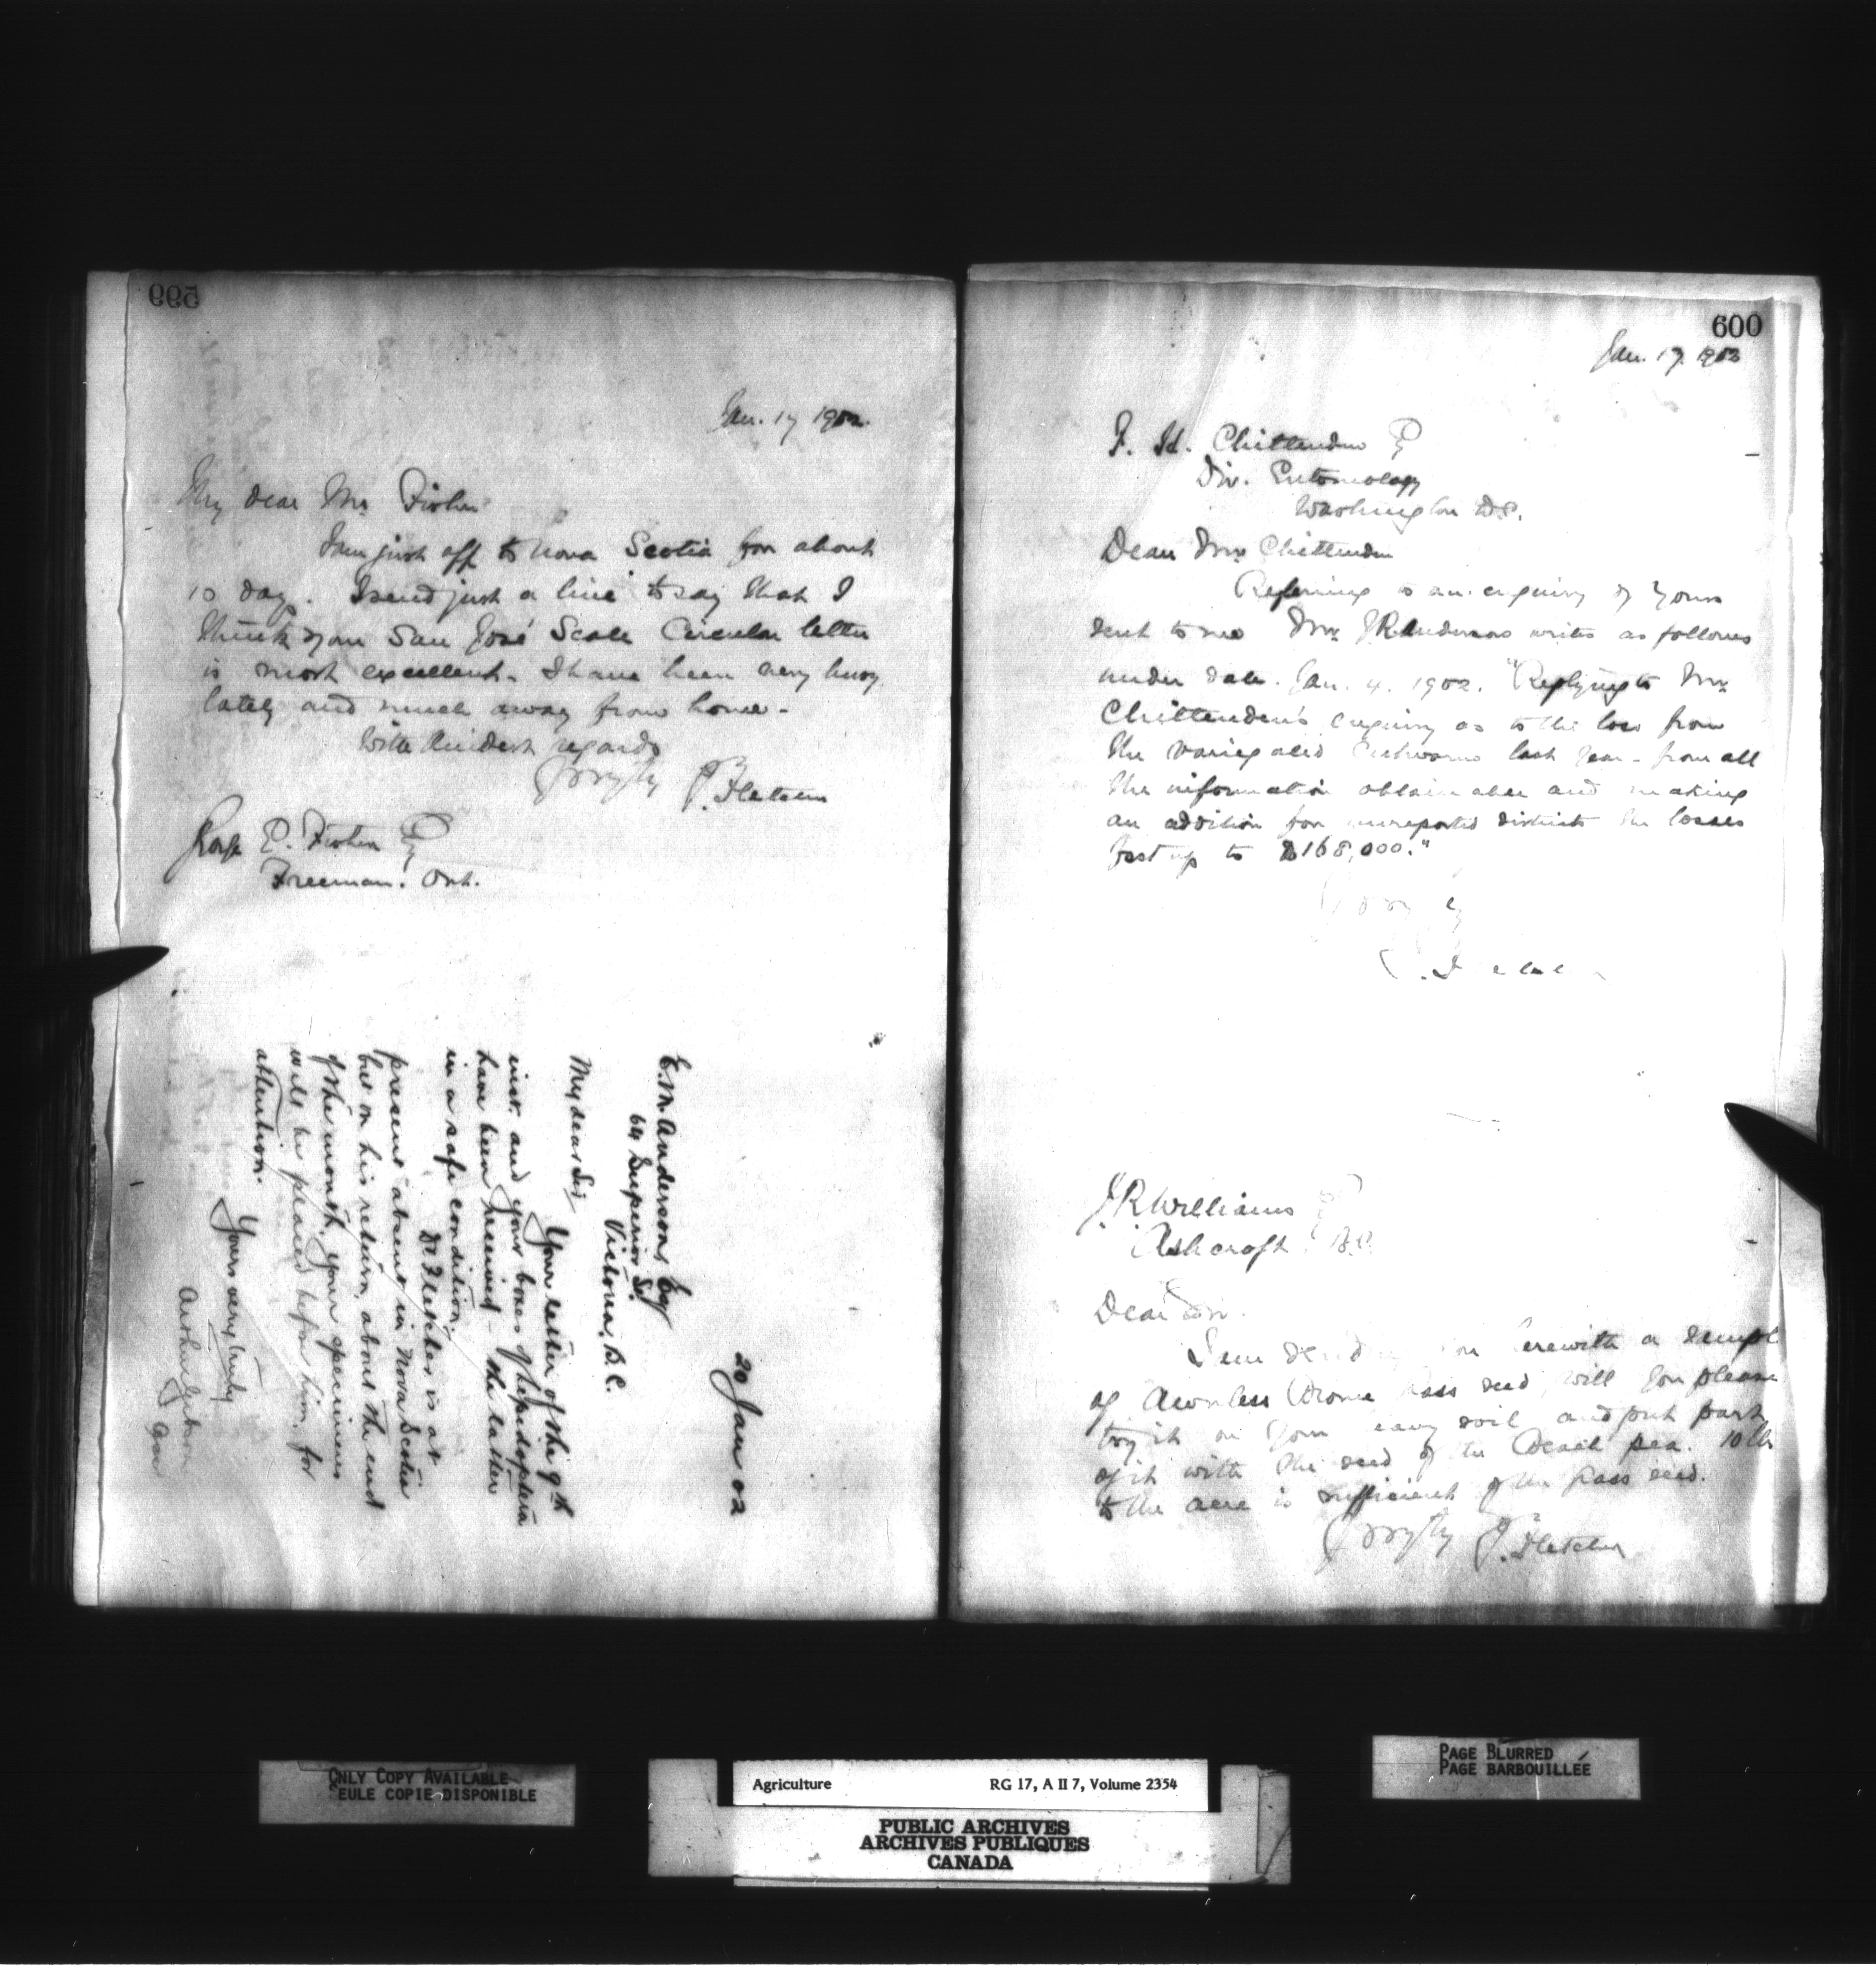 599
Jan. 17 1902.
My dear Mr Fisher
I am just off to Nova Scotia for about
10 days. I send just a line to say that I
think your San José Scale Circular letter
is most excellent. I have been very busy
lately and much away from home.
With kindest regards
J. Fletcher
George E. Fisher Esq
Freeman. Ont.
20 Jan 02
E. M. Anderson Esq
64 Superior St.
Victoria, B.C.
My dear Sir,
Your letter of the 9th
inst. and your boxes of lepidoptera
have been received - the latter
in a safe condition.
Dr. Fletcher is at
present absent in Nova Scotia
but on his return, about the end
of the month, your specimens
will be placed before him for
attention.
Yours very truly
Arthur Gibson
600
Jan. 17. 1902
F. H. Chittenden Esq
Div. Entomology
Washington D.C.
Dear Mr Chittenden
Referring to an enquiry of yours
sent to me Mr J R Anderson writes as follows
under date. Jan. 4. 1902. "Replying to Mr
Chittenden's enquiry as to the loss from
the Variegated Cutworm last year - from all
the information obtainable and making
an addition for unreported districts the losses
foot up to $168,000."
J. R. Williams Esq
Ashcroft. B.C.
Dear Sir.
I am sending you herewith a sample
of Awnless Brome Grass seed, will you please
try it on your heavy soil and put part
of it with the seed of the Beach pea. 10 lb
to the acre is sufficient of the grass seed.
J. Fletcher
ONLY COPY AVAILABLE
SEULE COPIE DISPONIBLE
Agriculture RG 17, A II 7, Volume 2354
PUBLIC ARCHIVES
ARCHIVES PUBLIQUES
CANADA
PAGE BLURRED
PAGE BARBOUILLÉE